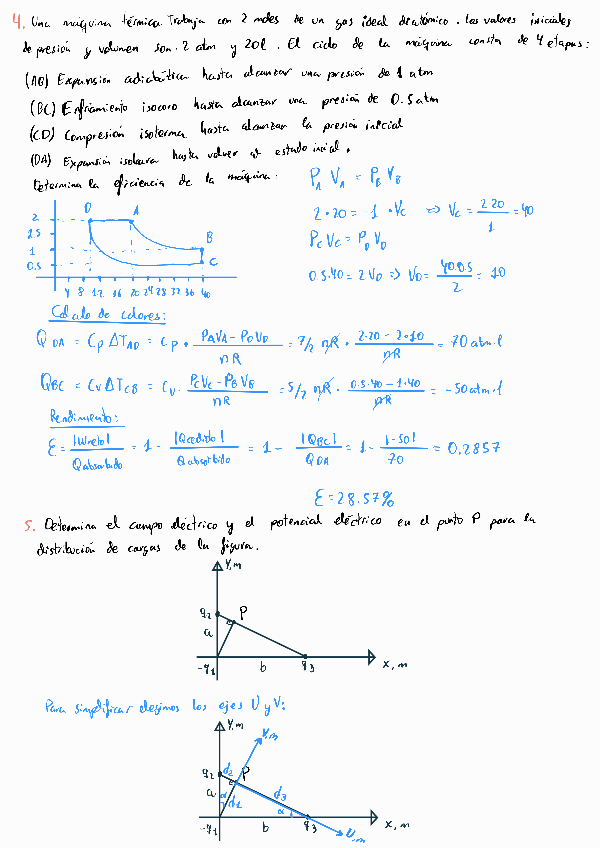 4. Una máquina térmica. Trabaja con 2 moles de un gas ideal diatómico. Los valores iniciales
de presión y volumen son 2 atm y 20l. El ciclo de la máquina consta de 4 etapas:
(AB) Expansión adiabática hasta alcanzar una presión de 1 atm
(BC) Enfriamiento isocoro hasta alcanzar una presión de 0.5 atm
(CD) Compresión isoterma hasta alcanzar la presión inicial
(DA) Expansión isobara hasta volver al estado inicial.
Determina la eficiencia de la máquina.
P_A V_A = P_B V_B
2·20 = 1·V_C ⇒ V_C = 2·20/1 = 40
P_C V_C = P_D V_D
0.5·40 = 2V_D ⇒ V_D = 40·0.5/2 = 10
D A
2
1.5
1 B
0.5 C
4 8 12 16 20 24 28 32 36 40
Cálculo de calores:
Q_DA = C_P ΔT_AD = C_P · (P_A V_A - P_D V_D)/nR = 7/2 nR · (2·20 - 2·10)/nR = 70 atm·l
Q_BC = C_V ΔT_CB = C_V · (P_C V_C - P_B V_B)/nR = 5/2 nR · (0.5·40 - 1·40)/nR = -50 atm·l
Rendimiento:
ε = |W neto|/Q absorbido = 1 - |Q cedido|/Q absorbido = 1 - |Q_BC|/Q_DA = 1 - |-50|/70 = 0,2857
ε = 28.57%
5. Determina el campo eléctrico y el potencial eléctrico en el punto P para la
distribución de cargas de la figura.
Y, m
q2 P
a
-q1 b q3 x, m
Para simplificar elegimos los ejes U y V:
Y, m
V, m
q2 d2 P
a α d1 d3
α
-q1 b q3 x, m
U, m